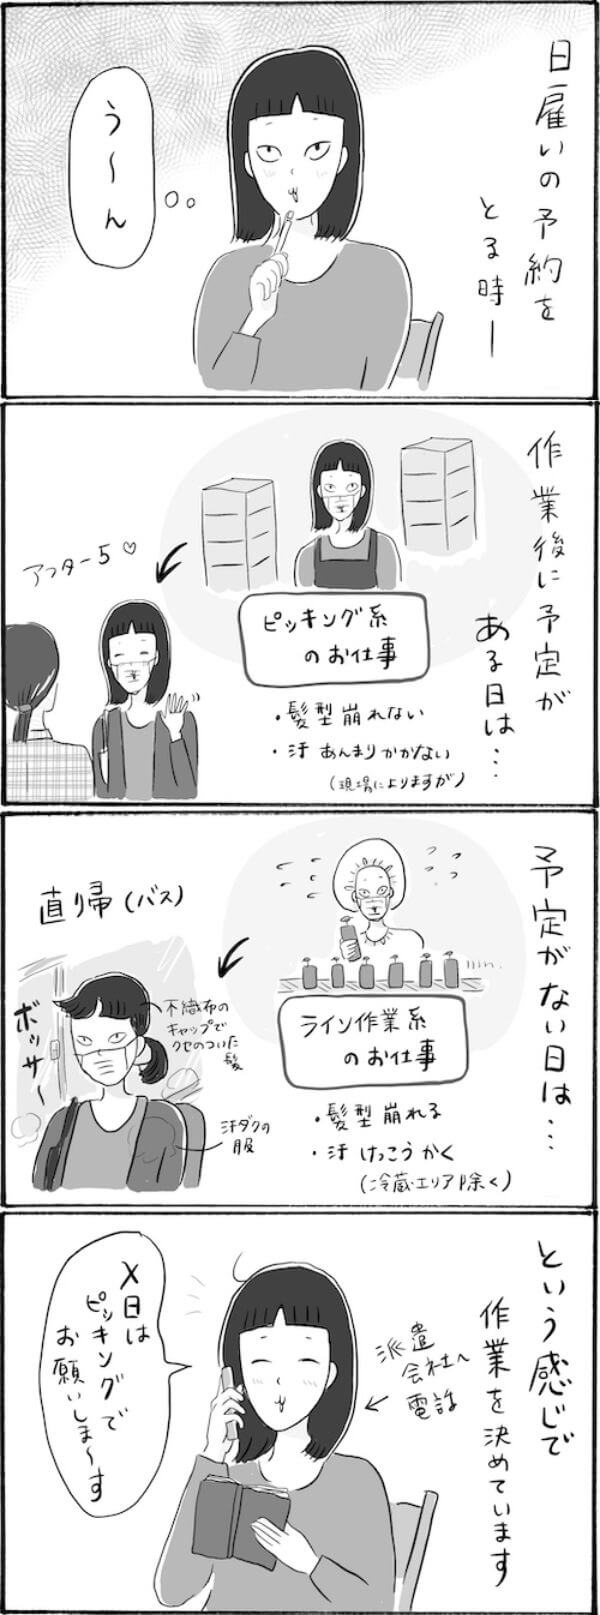 日雇いの予約を
とる時ー
う〜ん
作業後に予定が
ある日は…
ピッキング系
のお仕事
・髪型崩れない
・汗あんまりかかない
(現場によりますが)
アフター5♡
予定がない日は…
ライン作業系
のお仕事
・髪型崩れる
・汗けっこうかく
(冷蔵エリア除く)
直り帰(バス)
不織布の
キャップで
クセのついた
髪
ボッサー
汗ダクの
服
という感じで
作業を決めています
派遣
会社へ
電話
X日は
ピッキングで
お願いしま〜す